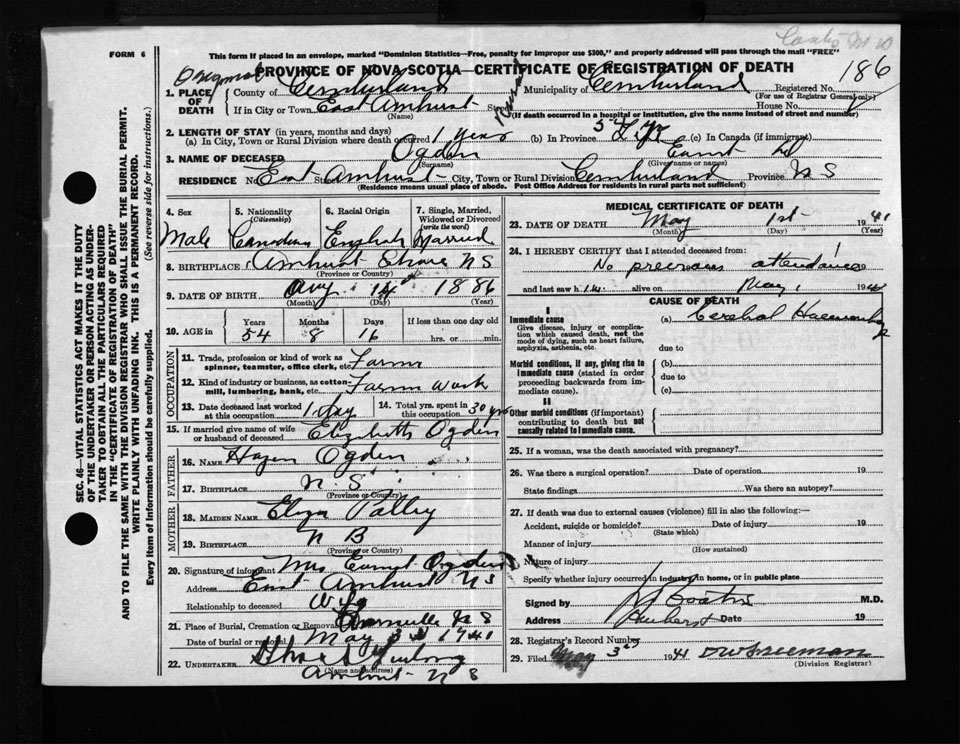 FORM 6
This form if placed in an envelope, marked "Dominion Statistics—Free, penalty for improper use $300," and properly addressed will pass through the mail "FREE"
Original
PROVINCE OF NOVA SCOTIA—CERTIFICATE OF REGISTRATION OF DEATH
186
1. PLACE OF DEATH
County of Cumberland
Municipality of Cumberland
Registered No.
(For use of Registrar General only)
If in City or Town East Amherst
(Name)
House No.
(If death occurred in a hospital or institution, give the name instead of street and number)
2. LENGTH OF STAY (in years, months and days)
(a) In City, Town or Rural Division where death occurred 1 year (b) In Province 54 yr (c) In Canada (if immigrant)
3. NAME OF DECEASED Ogden Earnest
(Surname) (Given name or names)
RESIDENCE No. East Amherst City, Town or Rural Division Cumberland Province N S
(Residence means usual place of abode. Post Office Address for residents in rural parts not sufficient)
4. Sex
Male
5. Nationality (Citizenship)
Canadian
6. Racial Origin
English
7. Single, Married, Widowed or Divorced (write the word)
Married
8. BIRTHPLACE Amherst Shore N S
(Province or Country)
9. DATE OF BIRTH Aug 14 1886
(Month) (Day) (Year)
10. AGE in
Years Months Days If less than one day old
54 8 16 hrs. or min.
OCCUPATION
11. Trade, profession or kind of work as spinner, teamster, office clerk, etc. Farm
12. Kind of industry or business, as cotton-mill, lumbering, bank, etc. Farm Work
13. Date deceased last worked at this occupation 1 day
14. Total yrs. spent in this occupation 30 yrs
15. If married give name of wife or husband of deceased Elizabeth Ogden
FATHER
16. NAME Hazen Ogden
17. BIRTHPLACE N. S.
(Province or Country)
MOTHER
18. MAIDEN NAME Eliza
19. BIRTHPLACE N B
(Province or Country)
20. Signature of informant Mrs Earnest Ogden
Address East Amherst N S
Relationship to deceased Wife
21. Place of Burial, Cremation or Removal N S
Date of burial or removal May 3 1941
22. UNDERTAKER Furlong
(Name and address)
Amherst N S
MEDICAL CERTIFICATE OF DEATH
23. DATE OF DEATH May 1st 1941
(Month) (Day) (Year)
24. I HEREBY CERTIFY that I attended deceased from:
No previous attendance
and last saw h im alive on May 1 1941
CAUSE OF DEATH
I
Immediate cause
Give disease, injury or complication which caused death, not the mode of dying, such as heart failure, asphyxia, asthenia, etc.
(a) Cerebral Haemorrhage
due to
Morbid conditions, if any, giving rise to Immediate cause (stated in order proceeding backwards from immediate cause).
(b)
due to
(c)
II
Other morbid conditions (if important) contributing to death but not causally related to Immediate cause.
25. If a woman, was the death associated with pregnancy?
26. Was there a surgical operation? Date of operation 19
State findings Was there an autopsy?
27. If death was due to external causes (violence) fill in also the following:—
Accident, suicide or homicide? Date of injury 19
(State which)
Manner of injury
(How sustained)
Nature of injury
Specify whether injury occurred in industry, in home, or in public place
Signed by M.D.
Address Amherst Date 19
28. Registrar's Record Number
29. Filed May 3rd 1941 DW Freeman
(Division Registrar)
SEC. 46—VITAL STATISTICS ACT MAKES IT THE DUTY OF THE UNDERTAKER OR PERSON ACTING AS UNDERTAKER TO OBTAIN ALL THE PARTICULARS REQUIRED IN THE "CERTIFICATE OF REGISTRATION OF DEATH" AND TO FILE THE SAME WITH THE DIVISION REGISTRAR WHO SHALL ISSUE THE BURIAL PERMIT.
WRITE PLAINLY WITH UNFADING INK. THIS IS A PERMANENT RECORD.
Every item of information should be carefully supplied. (See reverse side for instructions.)